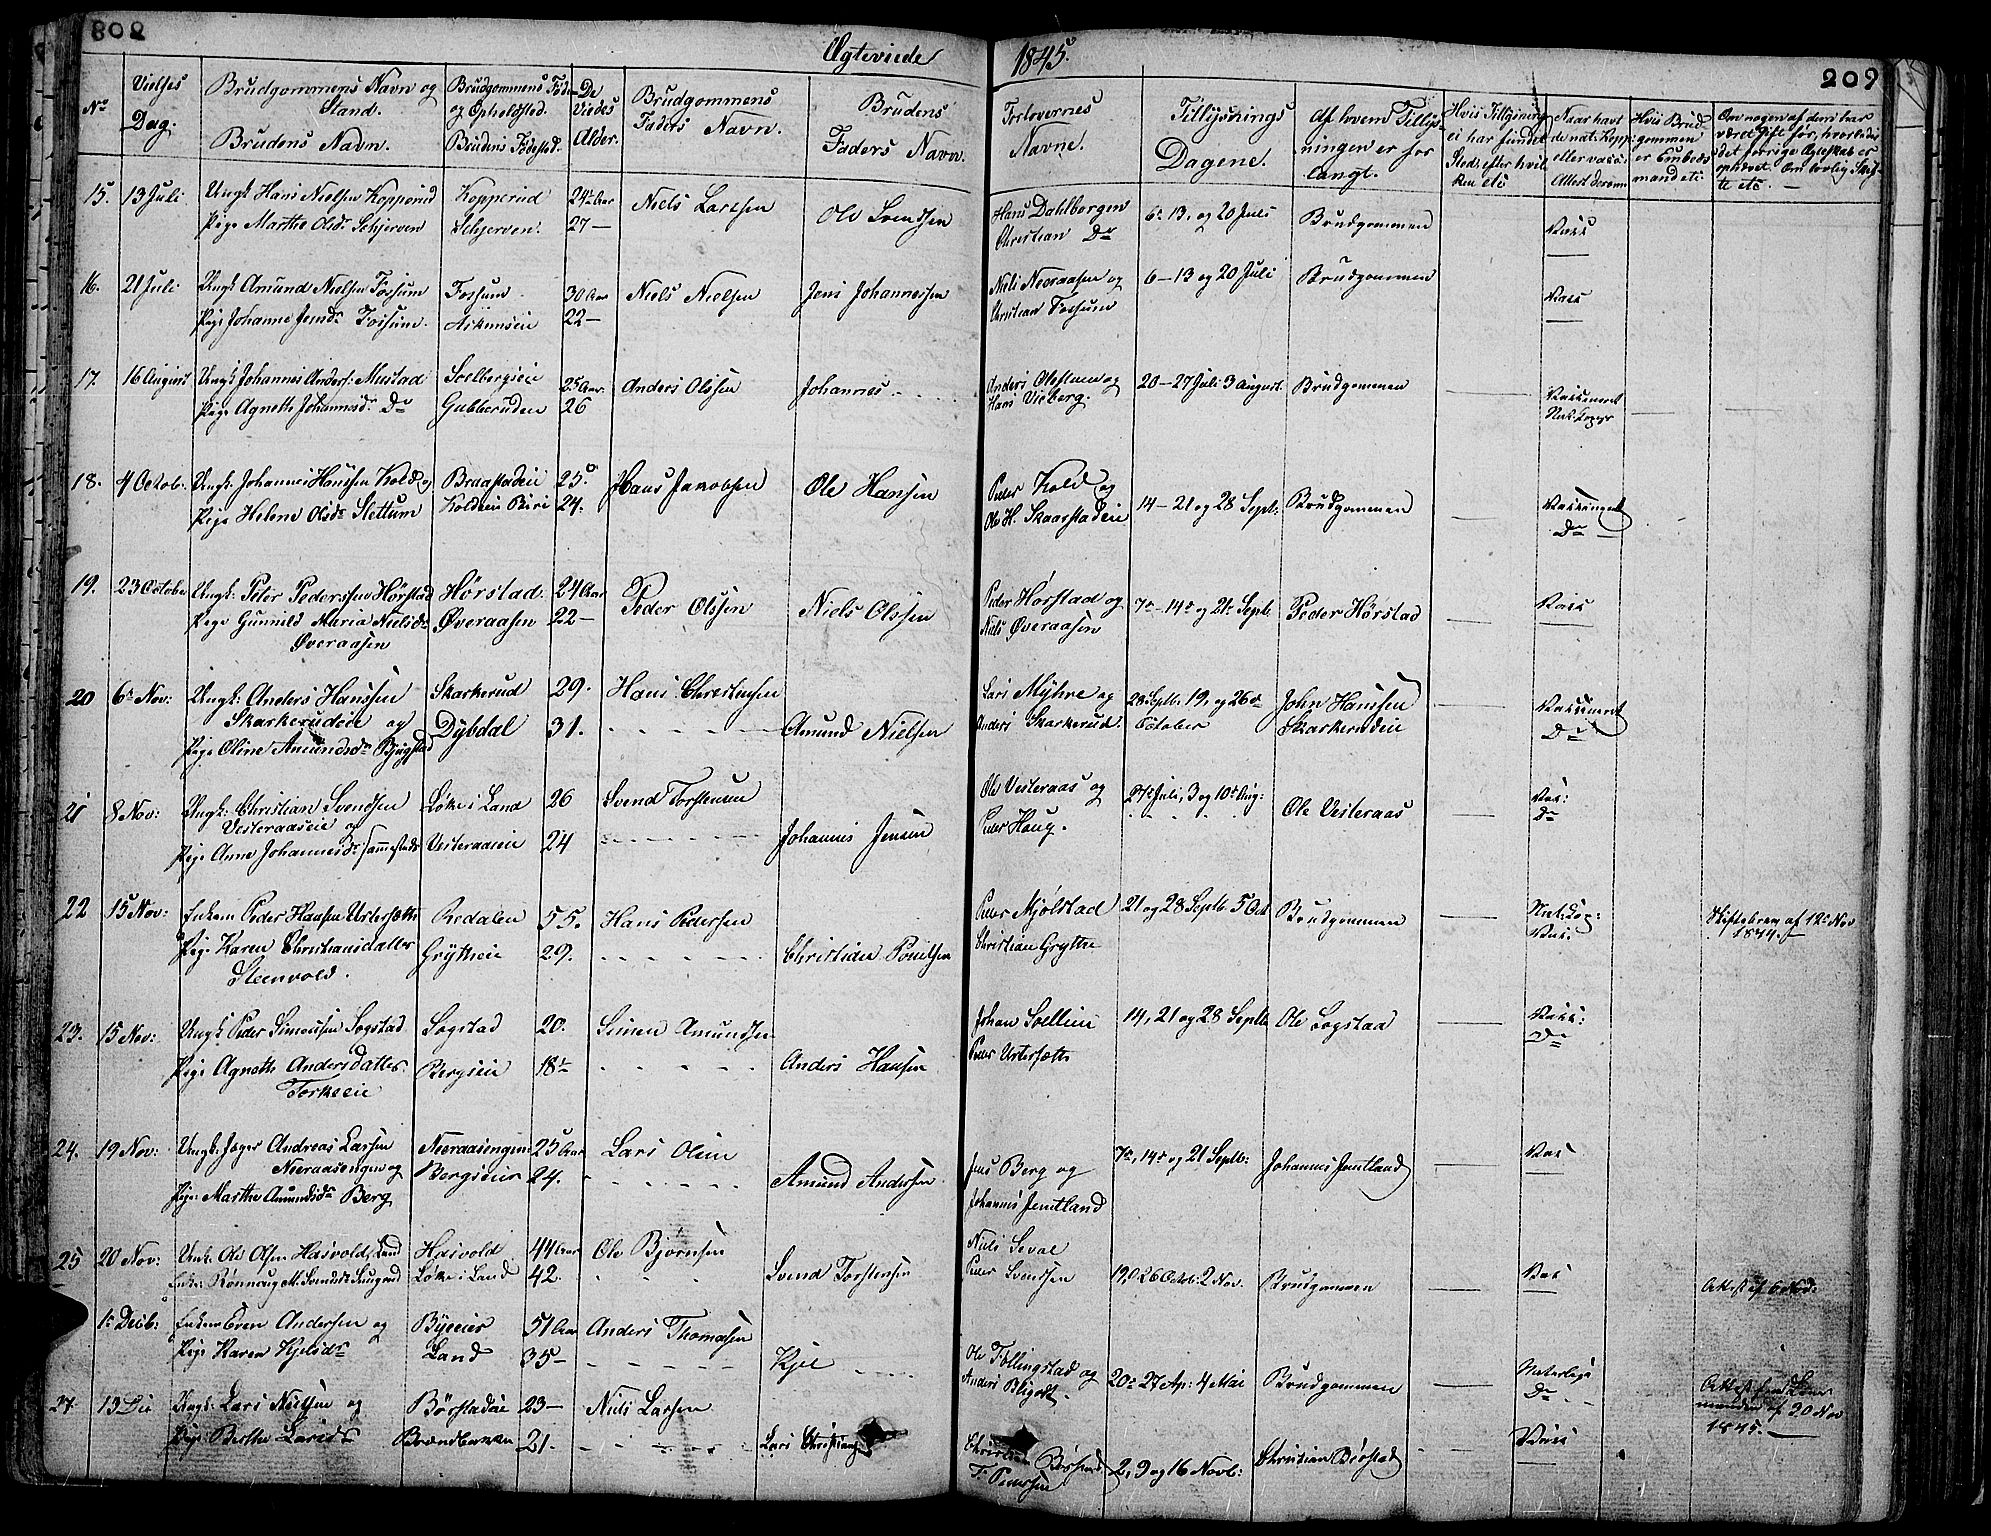 808
Ægteviede 1845.
209
No
Vielses Dag.
Brudgommens Navn og Stand.
Brudens Navn.
Brudgommens Føde- og Opholdsted.
Brudens Fødested.
De Viedes Alder.
Brudgommens Faders Navn.
Brudens Faders Navn.
Forlovernes Navne.
Tillysnings Dagene.
Af hvem Tillysningen er forlangt.
Hvis Tillysning ei har fundet Sted, efter hvilken etc
Naar havt de nat: Kopper eller vacc: Attest derom
Hvis Brudgommen er Embedsmand etc
Om nogen af dem har været gift før, hvorledes det forrige Ægteskab er ophævet. Om lovlig Skifte etc. —
15. 13 Juli Ungk Hans Nielsen Kopperud Kopperud 24 Aar Niels Larssen Ole Svendsen Hans Dahlbergen 6, 13, og 20 Juli Brudgommen Vacc
Pige Marthe Olsdr Schjerven Schjerven 27 — Christian Do
16. 21 Juli Ungk Amund Nielsen Fossum Fossum 30 Aar Niels Nielsen Jens Johannessen Niels Neeraasen og 6 — 13 og 20 Juli Brudgommen Vacc
Pige Johanne Jensdr Fossum. 22 — Christian Fossum
17. 16 August Ungk Johannes Anders: Mustad Soelbergseie 25 Aar Anders Olssen Johannes - - - Anders 20 — 27 Juli 3 August. Brudgommen Vaccineret
Pige Agnethe Johannesdr Do Gubberuden 26 Hans Vieberg. Nat. Kopper
18. 4 Octob. Ungk. Johannes Hanssen Kold og Braastadeie 25. Hans Jacobsen Ole Hansen Peder Kold og 14 — 21 og 28 Sept: Brudgommen Vaccineret
Pige Helene Olsdr Slettum Koldseie Biri 24. Ole H. Skaarstadeie Do
19. 23 October Ungk: Peter Pederssen Hørstad Hørstad. 24 Aar Peder Olssen Niels Olssen Peder Hørstad og 7 — 14 og 21 Septb Peder Hørstad Vacc
Pige Gunnild Maria Nielsdr Øveraasen 22 — Niels Øveraasen
Øveraasen
20 6 Nov: Ungk: Anders Hanssen Skarkerud 29. Hans Christensen Lars Myhre og 28 Septb. 19, og 26 John Hanssen Vaccineret
Skarkerudeie og Dybdal 31. - - - - - Amund Nielsen Anders Skarkerud. October Skarkerudeie Do
Pige Oline Amundsdr Bjugstad
21 8 Nov: Ungk: Christian Svendsen Løke i Land 26 Svend Torstensen Ole Vesteraas og 27 Juli, 3 og 10 Aug: Ole Vesteraas Vac:
Vesteraaseie og Do
Pige Anne Johannesdr Vesteraaseie 24 - - - - - Johannes Jensen Peder Haug.
22 15 Nov: Enkem Peder Hansen Redalen 55. Hans Pedersen Peder Mjølstad 21 og 28 Septb 5 Oct Brudgommen Nat. Kop: Skiftebrev af 12 Nov
Pige Karen Christiansdatter Grytteeie 29. - - - - - Christian Poulsen Christian Grytte Vac. 1844.
Steenvold.
23. 15 Nov: Ungk Peder Simensen Sogstad Sogstad 20. Simen Amundsen Johan 14, 21 og 28 Septb Ole Sogstad Vacc:
Pige Agnethe Andersdatter Bergseie 18½ - - - - - Anders Hansen Peder Do
24. 19 Nov: Ungk: Jæger Andreas Larsen Neeraasengen 25 Aar Lars Olsen Jens Berg og 7, 14 og 21 Septb: Johannes Jemtland Vac
Neeraasengen og Bergseie 24. - - - - - Amund Andersen Johannes Jemtland
Pige Marthe Amundsdr Berg
25 20 Nov: Ungk. Ole Olsen Hasvold, Land Hasvold 44 Aar Ole Bjørnsen Niels 19, 26 Octb: 2 Nov. Brudgommen Vac Attest af 6 Nov:
Enke: Rønnaug M. Svendsdr Løke i Land 42. - - - Svend Torstensen Peder Svendsen
1 Decb: Enkem Even Andersen og 51 Aar Anders Thomasen Ole Føllingstad og 20 27 Ap: 4 Mai Brudgommen Naturlige Attest fra
Pige Karen Kjelsdr Land 35 — - - - - - Kjel - - - Anders Do manden af 20 Nov
1845. —
27 13 Dec Ungk: Lars Nielsen og Børstadeie 23 — Niels Larsen Børstad 2, 9 og 16 Novb: Christian Børstad Vacc
Pige Berthe Larsdr 21. - - - - - Lars Christians Pedersen